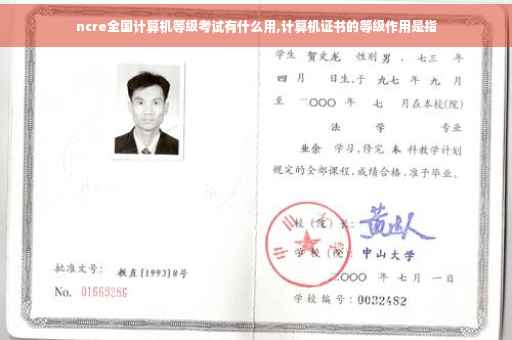 ncre全国计算机等级考试有什么用,计算机证书的等级作用是指
学生 贺文龙 性别 男 、七三 年
四 月 日生,于 九七 年 九 月
至 二〇〇〇 年 七 月在本校(院)
法 学 专业
业余 学习,修完 本 科教学计划
规定的全部课程,成绩合格,准予毕业。
校(院)长:
学校(院): 中山大学
二〇〇〇 年 七 月 一 日
学校编号: 0032482
批准文号: 教直[1993]8号
No. 01669286